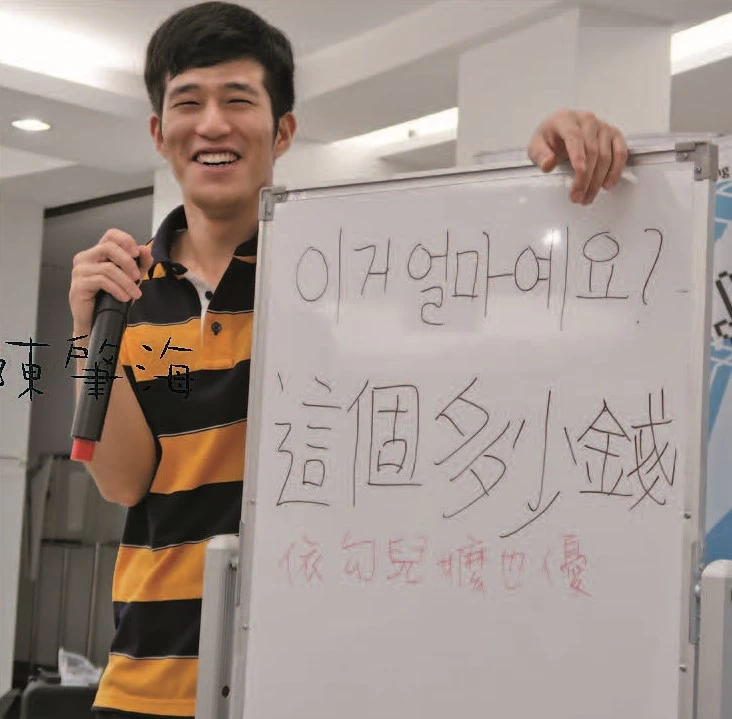 이거 얼마예요?
陳肇海
這個多少錢
依勾兒嬤也優